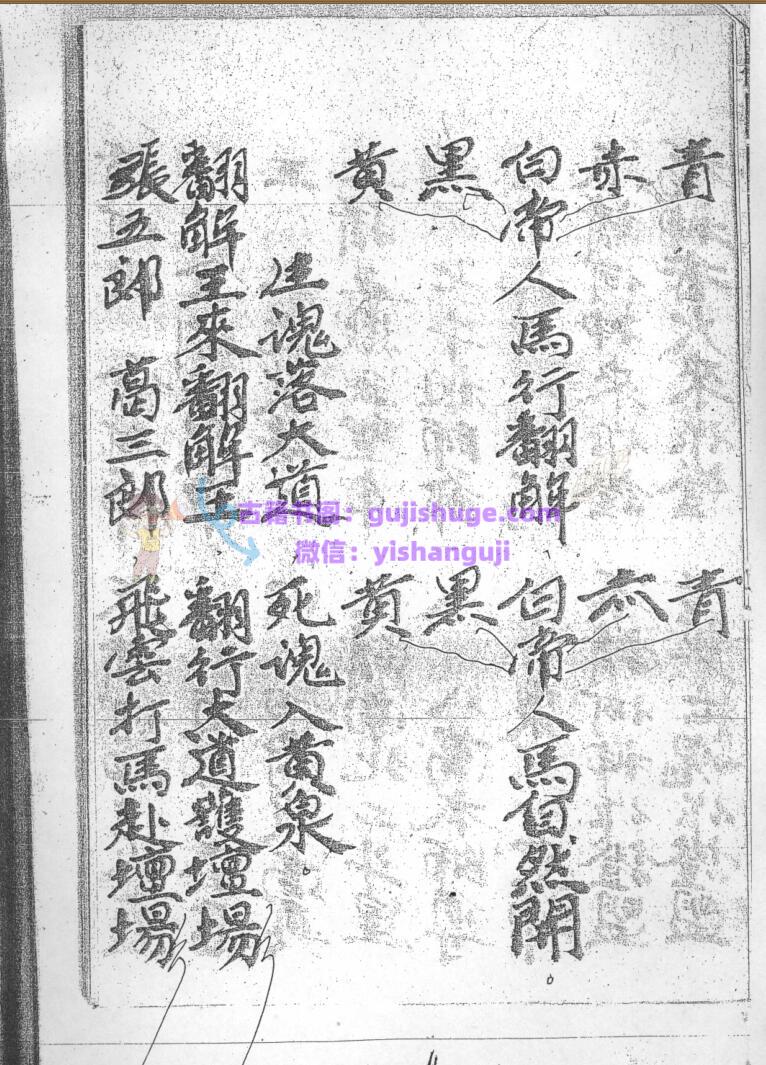 青 青
赤 赤
白帝人馬行翻解 白帝人馬自然開
黑 黑
黄 黄
生魂落大道 死魂入黄泉
翻解王來翻解王 翻行大道護壇場
張五郎 葛三郎 飛雲打馬赴壇場
古籍书阁：gujishuge.com
微信：yishanguji